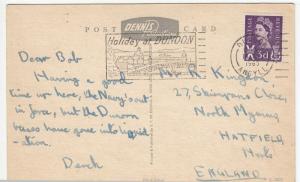 POST CARD
DENNIS
Holiday at DUNOON
3d
ARGYLL
Dear Bob
Having a good
time up here, the Navy's out
in force, but the Dunoon
buses have gone into liquid-
-ation.
Derek
Mr R Kingen
27,
North Mymms
HATFIELD
Herts
ENGLAND